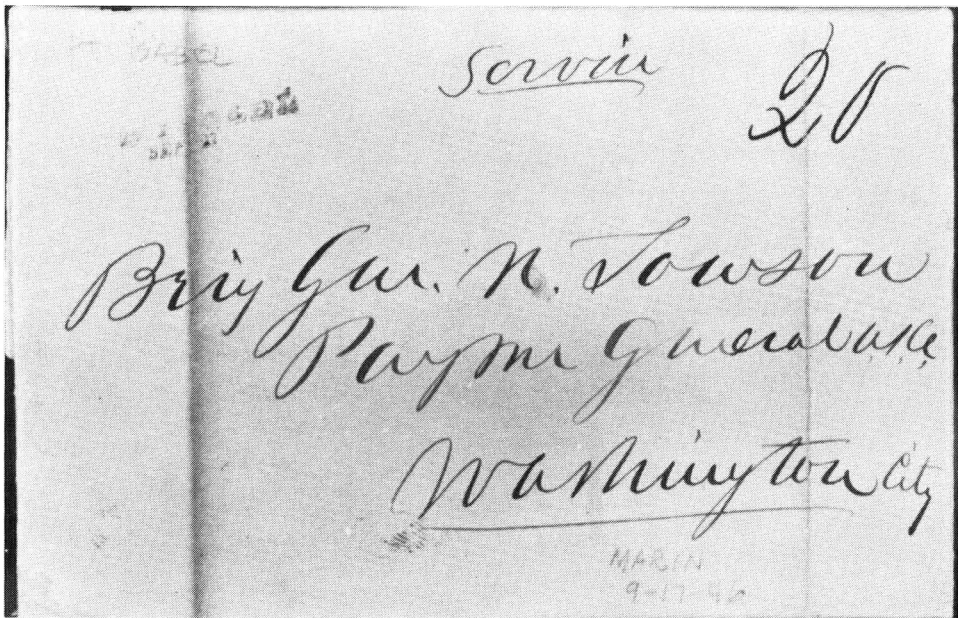 Service
20
Brig Gen. N. Towson
Paym General U.S.A.
Washington City
MARIN
9-17-46